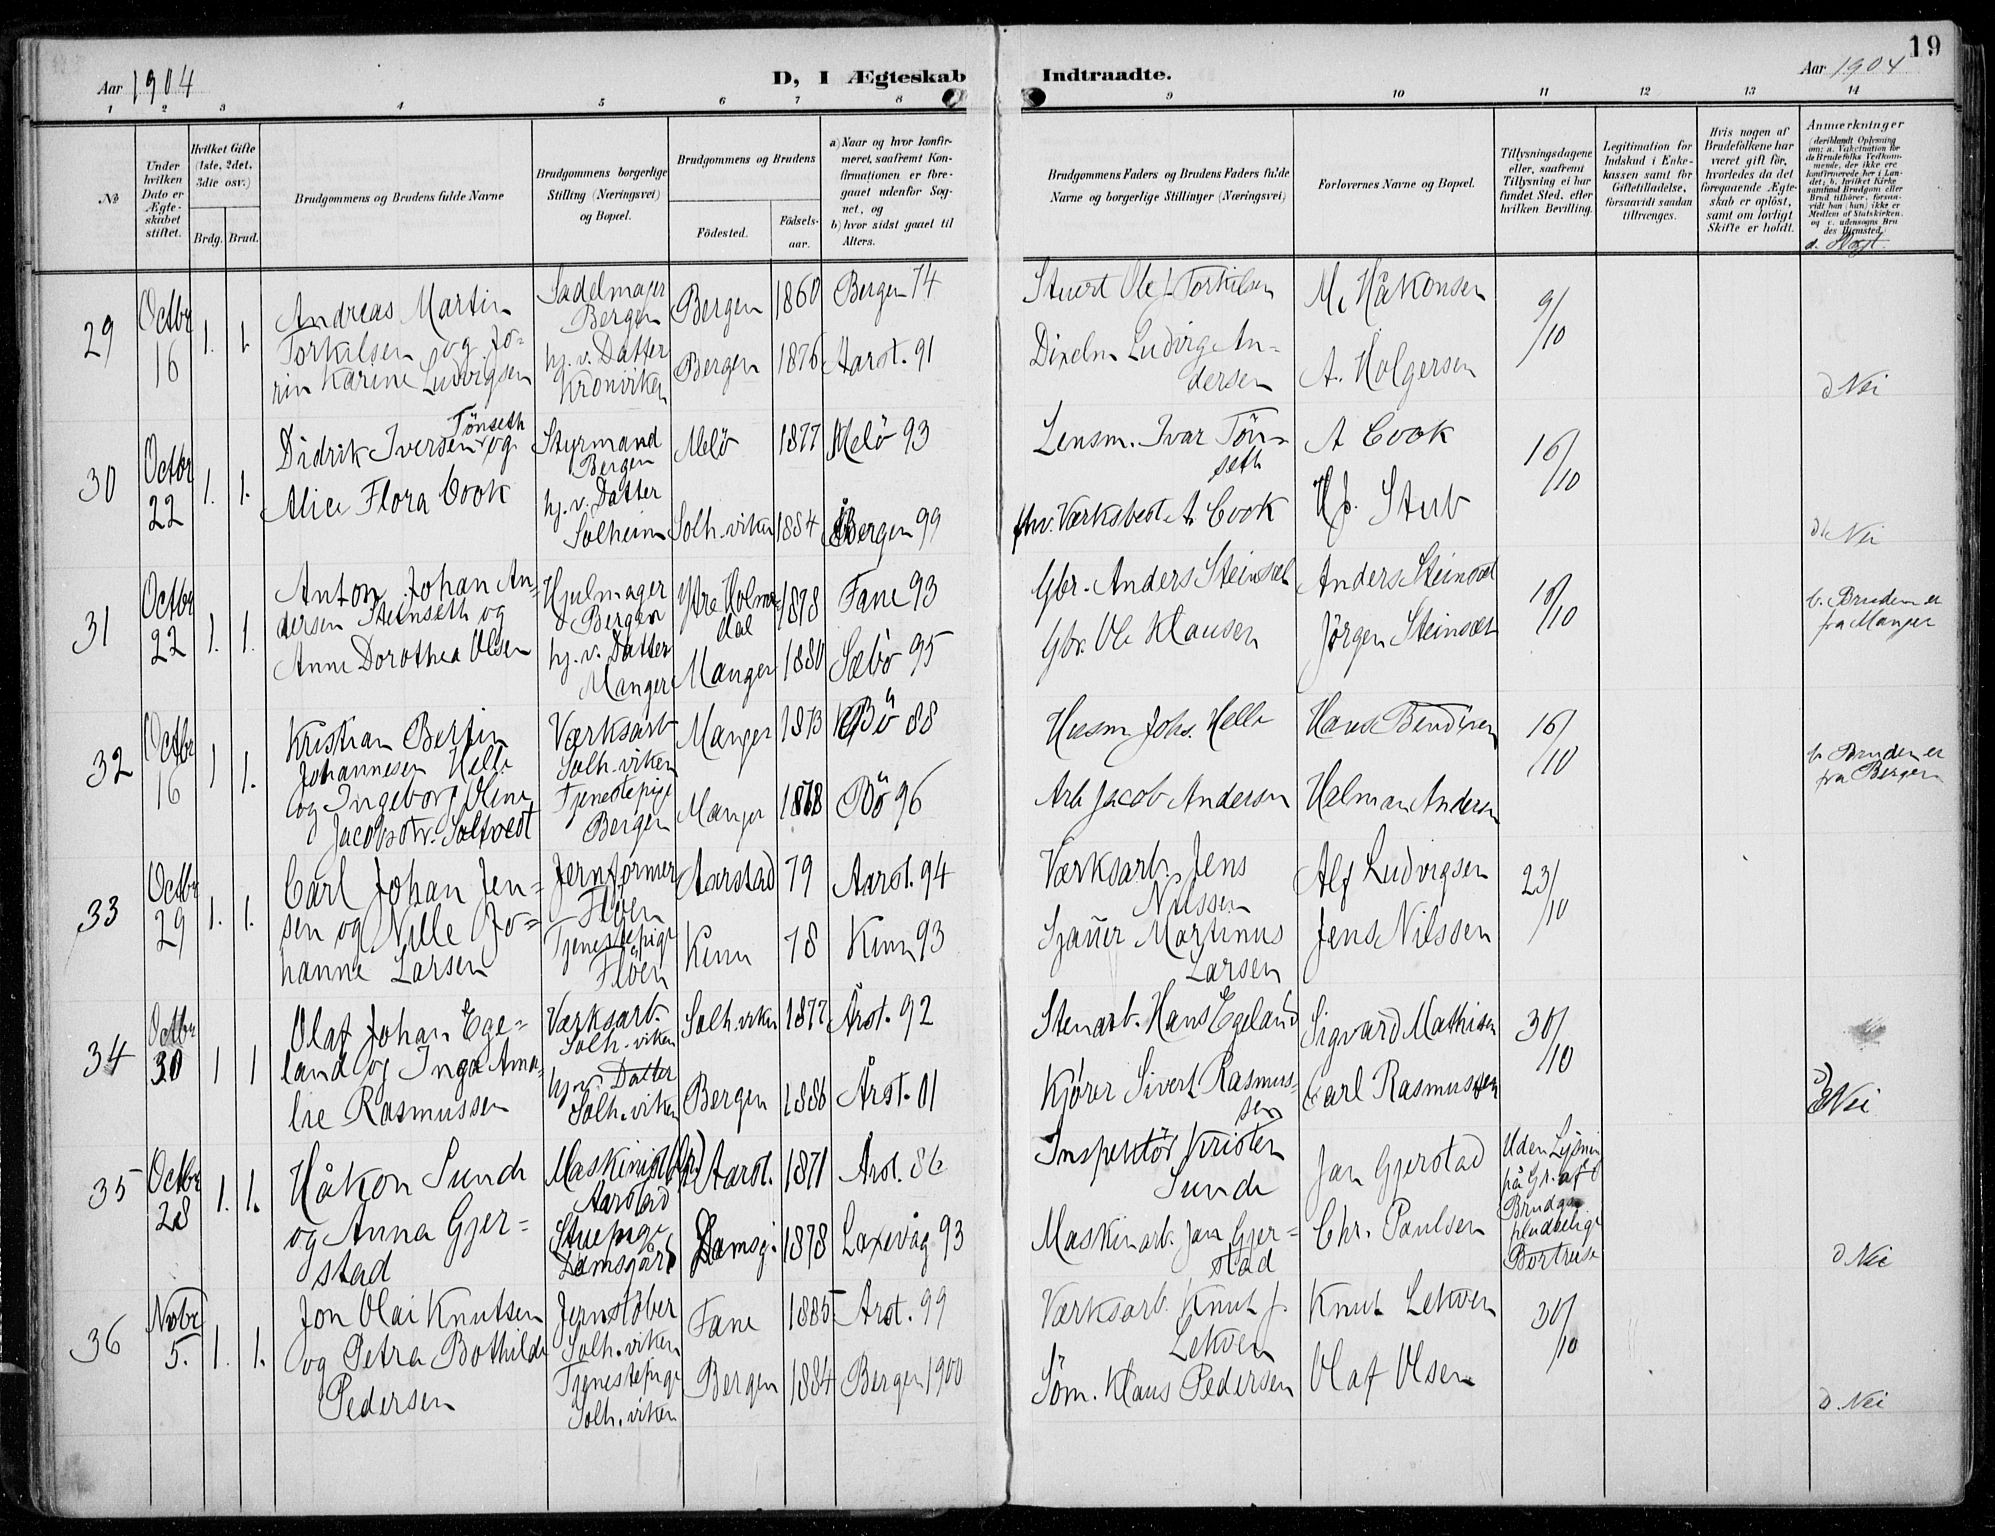 19
Aar 1904
D, I Ægteskab
Indtraadte.
Aar 1904
1 2 3 4 5 6 7 8
9 10 11 12 13 14
No
Under
hvilken
Dato er
Ægte-
skabet
stiftet.
Hvilket Gifte
(1ste, 2det.
3die osv.)
Brdg. Brud.
Brudgommens og Brudens fulde Navne
Brudgommens borgerlige
Stilling (Næringsvei)
og Bopæl.
Brudgommens og Brudens
Födested.
Födsels-
aar.
a) Naar og hvor konfir-
meret, saafremt Kon-
firmationen er fore-
gaaet udenfor Sog-
net, og
b) hvor sidst gaaet til
Alters.
Brudgommens Faders og Brudens Faders fulde
Navne og borgerlige Stillinger (Næringsvei)
Forlovernes Navne og Bopæl.
Tillysningsdagene
eller, saafremt
Tillysning ei har
fundet Sted, efter
hvilken Bevilling.
Legitimation for
Indskud i Enke-
kassen samt for
Giftetilladelse,
forsaavidt saadan
tiltrænges.
Hvis nogen af
Brudefolkene har
været gift för,
hvorledes da det
foregaaende Ægte-
skab er oplöst,
samt om lovligt
Skifte er holdt.
Anmærkninger
(deriblandt Oplysning
om: a. Vakcination for
de Brudefolks Vedkom-
mende, der ikke ere
konfirmerede her i Lan-
det; b. hvilket Kirke
samfund Brudgom eller
Brud tilhörer, forsaa-
vidt han (hun) ikke er
Medlem af Statskirken,
og c. udensogns Bru
des Hjemsted.)
d. Slægt.
29
Octbr
16
1. 1.
Andreas Martin
Torkilsen og Jo-
rin Karine Ludvigsen
Sadelmager
Bergen
hj. v. Datter
Kronviken
Bergen 1860 Bergen 74
Bergen 1876 Aarst. 91
Stuert Ole J. Torkilsen
Dixelm Ludvig An-
dersen
M. Håkonsen
A. Holgersen
9/10
d Nei
30
Octbr
22
1. 1.
Tönseth
Didrik Iversen og
Alice Flora Cook
Styrmand
Bergen
hj. v. Datter
Solheim
Melö 1877 Melö 93
Solh.viken 1884 Bergen 99
Lensm. Ivar Tön-
seth
fhv. Værksbest. A. Cook
A Cook
Hf. Stub
16/10
d. Nei
31
Octbr
22
1. 1.
Anton Johan An-
dersen Steinseth og
Anne Dorothea Olsen
Hjulmager
Bergen
hj. v. Datter
Manger
Ytre Holme-
dal
1878 Fane 93
Manger 1880 Sæbö 95
Gbr. Anders Steinsæt
Gbr. Ole Klausen
Anders Steinsæt
Jörgen Steinsæt
16/10
c. Bruden er
fra Manger
32
Octbr
16
1 1.
Kristian Bertin
Johannesen Helle
og Ingeborg Oline
Jacobsdtr. Soltvedt
Værksarb
Solh.viken
Tjenestepige
Bergen
Manger 1873 Bö 88
Manger 1878 Bö 96
Husm Johs. Helle
Arb Jacob Andersen
Hans Bendixen
Helman Andersen
16/10
c. Bruden er
fra Bergen
33
Octbr
29
1. 1.
Carl Johan Jen-
sen og Nille Jo-
hanne Larsen
Jernformer
Flöen
Tjenestepige
Flöen
Aarstad 79 Aarst. 94
Kinn 78 Kinn 93
Værksarb. Jens
Nilssen
Sjauer Martinus
Larsen
Alf Ludvigsen
Jens Nilssen
23/10
34
Octbr
30
1 1
Olaf Johan Ege-
land og Inga Ama-
lie Rasmussen
Værksarb.
Solh.viken
hj. v. Datter
Solh.viken
Solh.viken 1877 Årst. 92
Bergen 1886 Årst. 01
Stenarb. Hans Egeland
Kjörer Sivert Rasmus-
sen
Sigvard Mathisen
Carl Rasmussen
30/10
d) Nei
35
Octbr
28
1. 1.
Håkon Sunde
og Anna Gjer-
stad
Maskinist
Aarstad
Stuepige
Damsgård
Aarst. 1871 Årst. 86
Damsg. 1878 Laxevåg 93
Inspektör Kristen
Sunde
Maskinarb. Jan Gjer-
stad
Jan Gjerstad
Chr. Paulsen
Uden Lysning
på Gr. af
Brudgom
pludselige
Bortreise
d Nei
36
Novbr
5.
1. 1.
Jon Olai Knutsen
og Petra Bothilde
Pedersen
Jernstöber
Solh.viken
Tjenestepige
Solh.viken
Fane 1885 Årst. 99
Bergen 1884 Bergen 1900
Værksarb. Knut J.
Lekven
Söm. Klaus Pedersen
Knut Lekven
Olaf Olsen
30/10
d. Nei